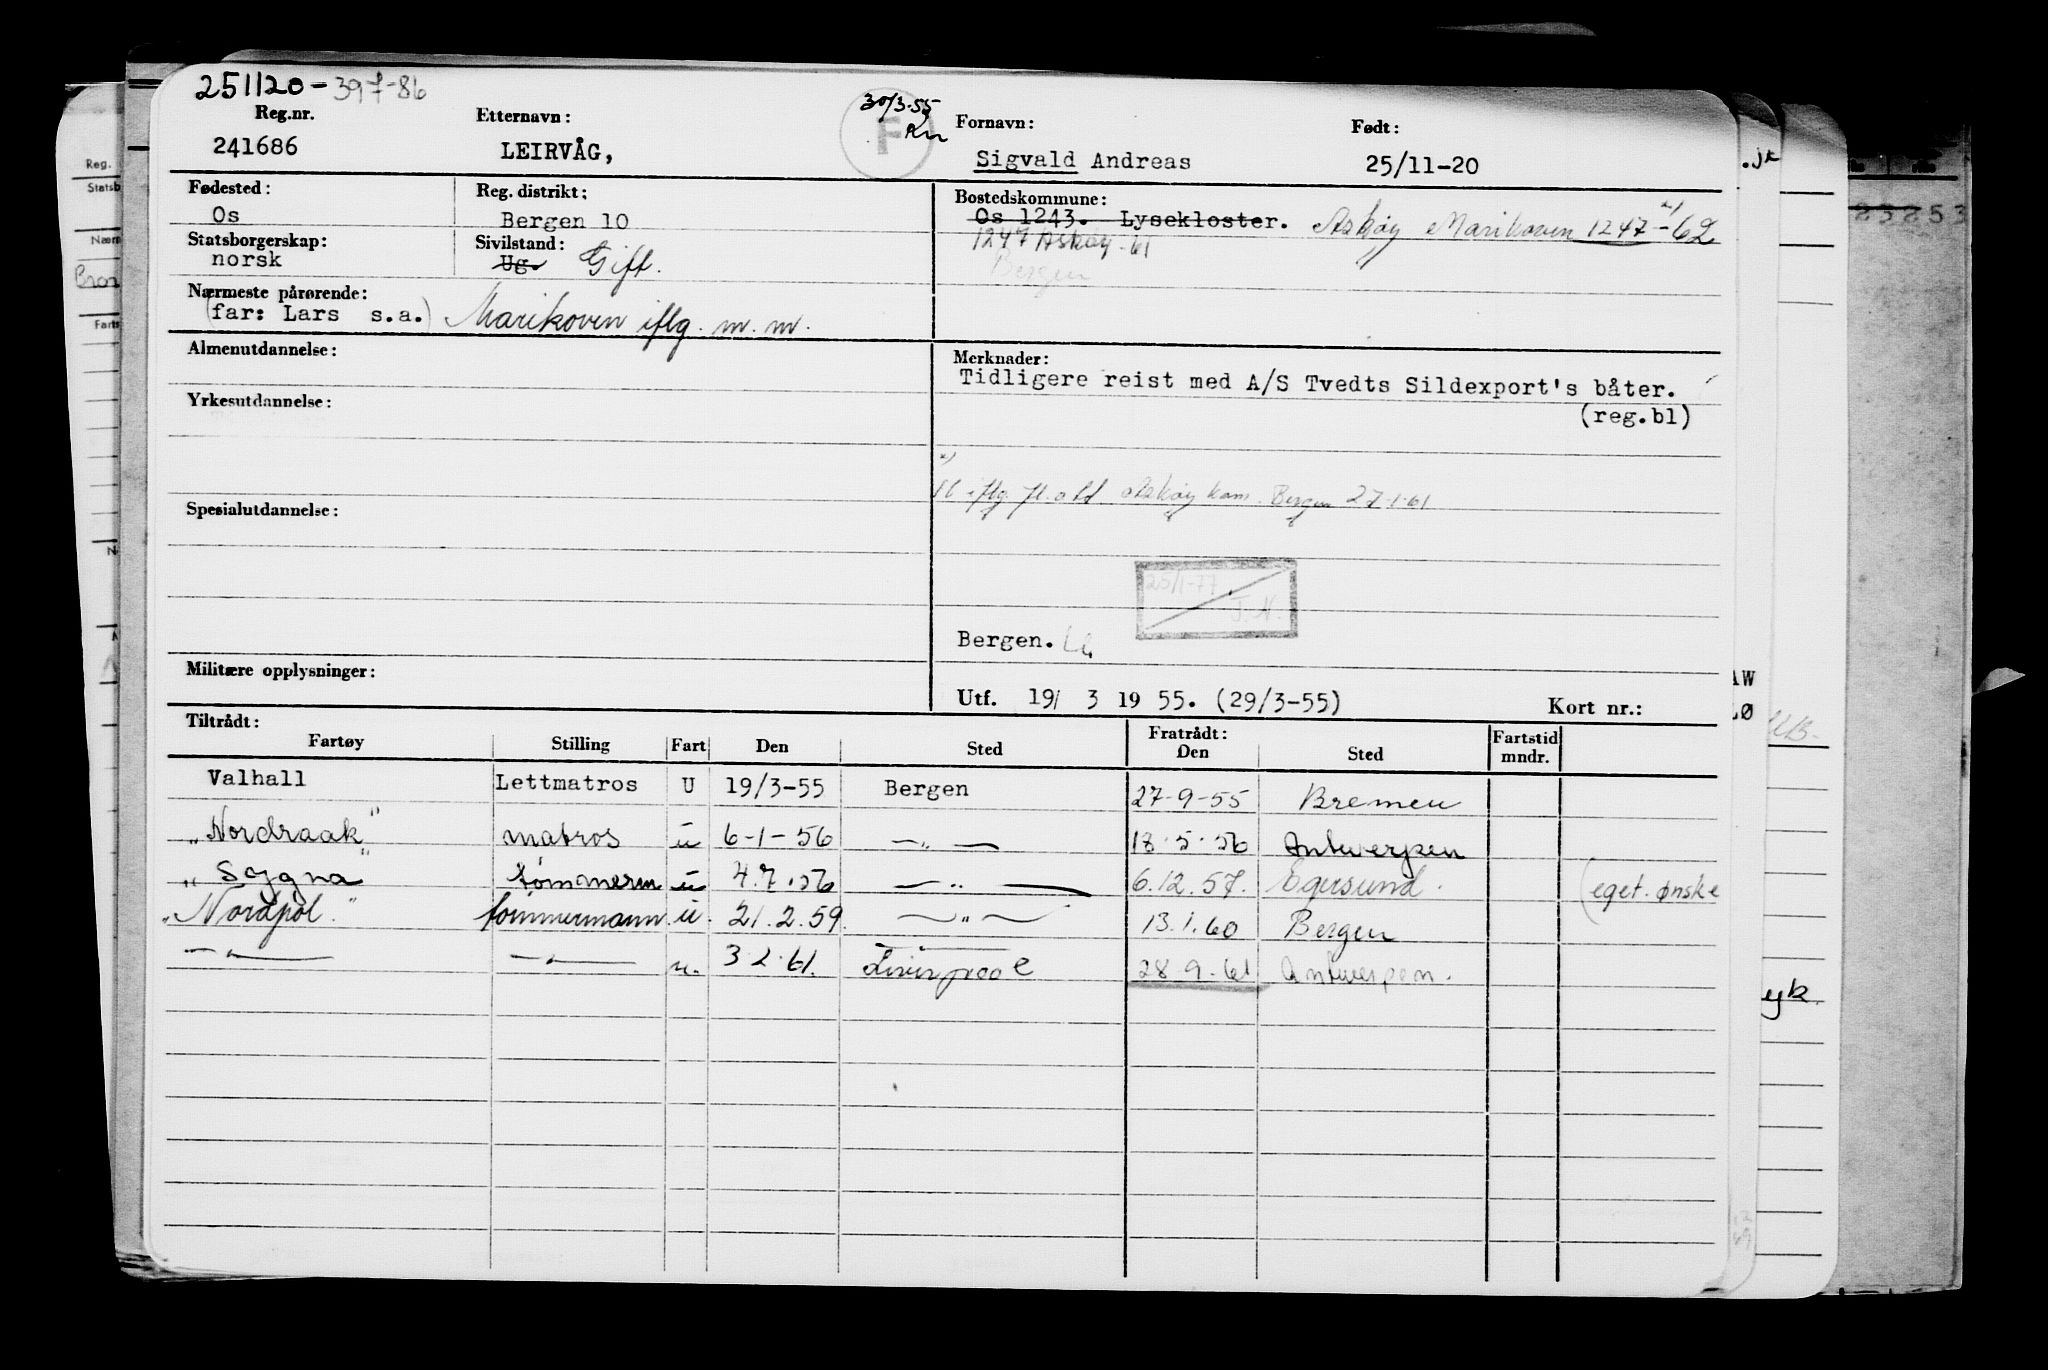 251120-397-86
Reg.nr. Etternavn: 30/3-55 Fornavn: Født:
241686 LEIRVÅG, F Sigvald Andreas 25/11-20
Fødested: Reg. distrikt: Bostedskommune:
Os Bergen 10 Os 1243. Lysekloster. Askøy Marikoven 1247-62
Statsborgerskap: Sivilstand: 1247 Askøy-61
norsk Ug. Gift. Bergen
Nærmeste pårørende:
(far: Lars s.a.) Marikoven iflg. m.m.
Almenutdannelse: Merknader:
Tidligere reist med A/S Tvedts Sildexport's båter.
Yrkesutdannelse: (reg.bl)
x)
iflg. Askøy kom. Bergen 27-1-61
Spesialutdannelse:
25/1-77
J.N.
Bergen.
Militære opplysninger:
Utf. 19/ 3 19 55. (29/3-55) Kort nr.:
Tiltrådt: Fratrådt:
Fartøy Stilling Fart Den Sted Den Sted Fartstid mndr.
Valhall Lettmatros U 19/3-55 Bergen 27-9-55 Bremen
"Nordraak" matros u 6-1-56 —"— 18.5.56 Antwerpen
"Sogna" tømmerm u 4.7.56 —"— 6.12.57. Egersund. (eget ønske
"Nordpol." tømmermann u. 21.2.59. —"— 13.1.60 Bergen
—"— —"— u. 3.2.61. Liverpool 28.9.61 Antwerpen.